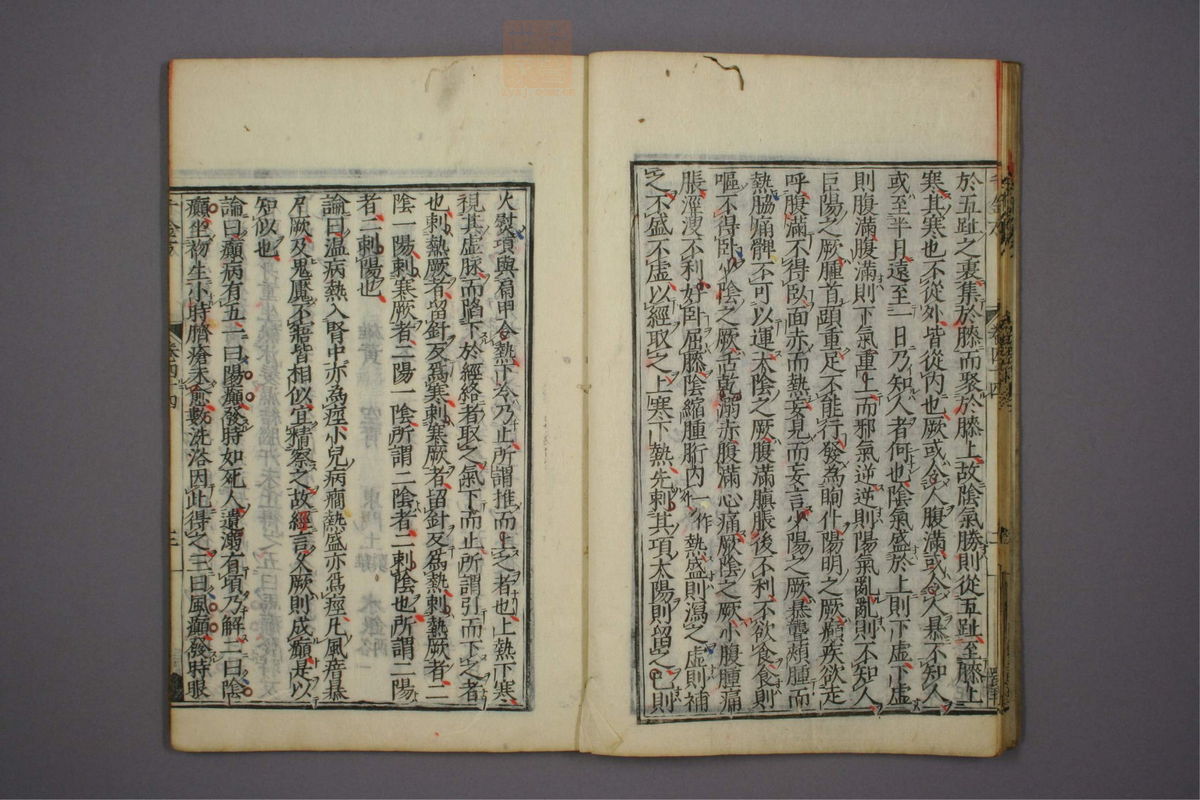 於五趾之裏集於膝而聚於膝上故陰氣勝則從五趾至膝上
寒其寒也不從外皆從內也厥或令人腹滿或令人暴不知人
或至半日遠至一日乃知人者何也陰氣盛於上則下虛下虛
則腹滿腹滿則下氣重上而邪氣逆逆則陽氣亂亂則不知人
巨陽之厥腫首頭重足不能行發為眴仆陽明之厥癲疾欲走
呼腹滿不得臥面赤而熱妄見而妄言少陽之厥暴聾頰腫而
熱脇痛髀不可以運太陰之厥腹滿䐜脹後不利不欲食食則
嘔不得臥少陰之厥舌乾溺赤腹滿心痛厥陰之厥小腹腫痛
脹涇溲不利好臥屈膝陰縮腫䯒內一作熱盛則瀉之虛則補
之不盛不虛以經取之上寒下熱先刺其項太陽則留之已則
火熨項與肩甲令熱下冷乃止所謂推而上之者也上熱下寒
視其虛脉而陷下於經絡者取之氣下而止所謂引而下之者
也刺熱厥者留針反爲寒刺寒厥者留針反爲熱刺熱厥者二
陰一陽刺寒厥者二陽一陰所謂二陰者二刺陰也所謂二陽
者二刺陽也
論曰温病熱入腎中亦為痙小兒病癇熱盛亦爲痙凡風瘖暴
尸厥及鬼魘不寤皆相似宜精察之故經言久厥則成癲是以
知似也
論曰癲病有五一曰陽癲發時如死人遺溺有頃乃解二曰陰
癲坐初生小時臍瘡未愈數洗浴因此得之三曰風癲發時眼
千金方
卷四十四
三